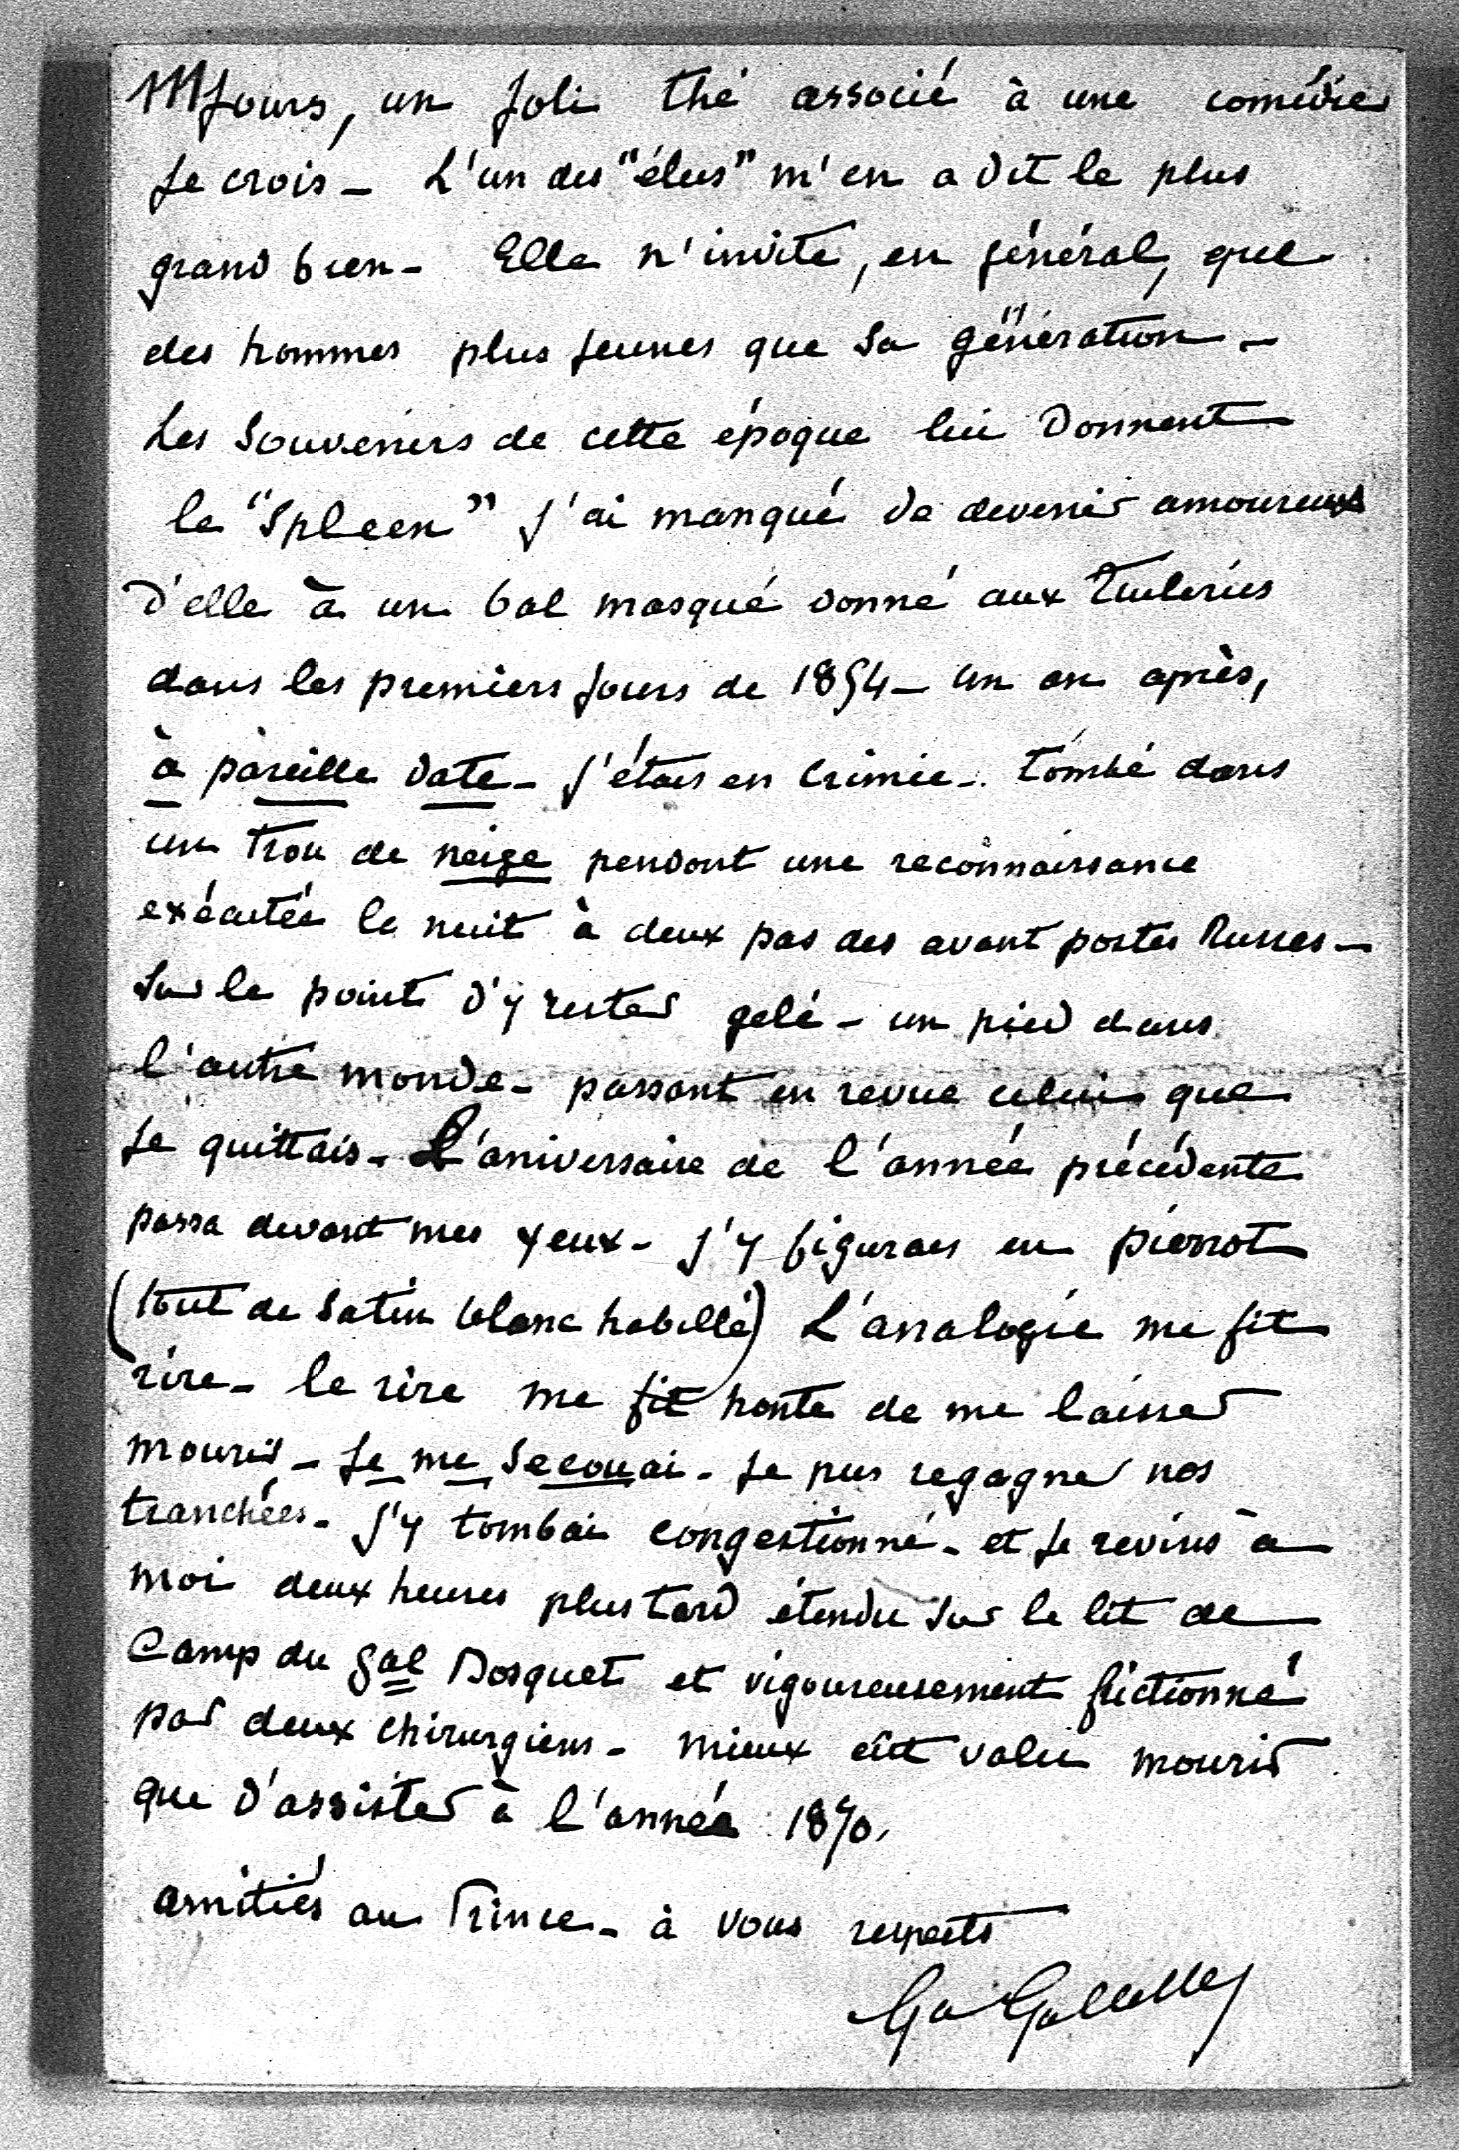 jours, un joli thé associé à une comédie
je crois - L'un des "élus" m'en a dit le plus
grand bien - Elle n'invite, en général, que
des hommes plus jeunes que sa génération -
Les souvenirs de cette époque lui donnent
le "Spleen" j'ai manqué de devenir amoureux
d'elle à un bal masqué donné aux Tuileries
dans les premiers jours de 1854 - un an après,
à pareille date - j'étais en Crimée - tombé dans
un trou de neige pendant une reconnaissance
exécutée la nuit à deux pas des avant postes Russes -
Sur le point d'y rester gelé - un pied dans
l'autre monde - passant en revue celui que
je quittais - L'aniversaire de l'année précédente
passa devant mes yeux - j'y figurais en pierrot
(tout de satin blanc habillé) L'analogie me fit
rire - le rire me fit honte de me laisser
mourir - je me secouai - je pus regagner nos
tranchées - j'y tombai congestionné - et je revins à
moi deux heures plus tard étendu sur le lit de
camp du gal Bosquet et vigoureusement frictionné
par deux chirurgiens - mieux eût valu mourir
que d'assister à l'année 1870.
amitiés au Prince - à vous respects
Gal Galliffet